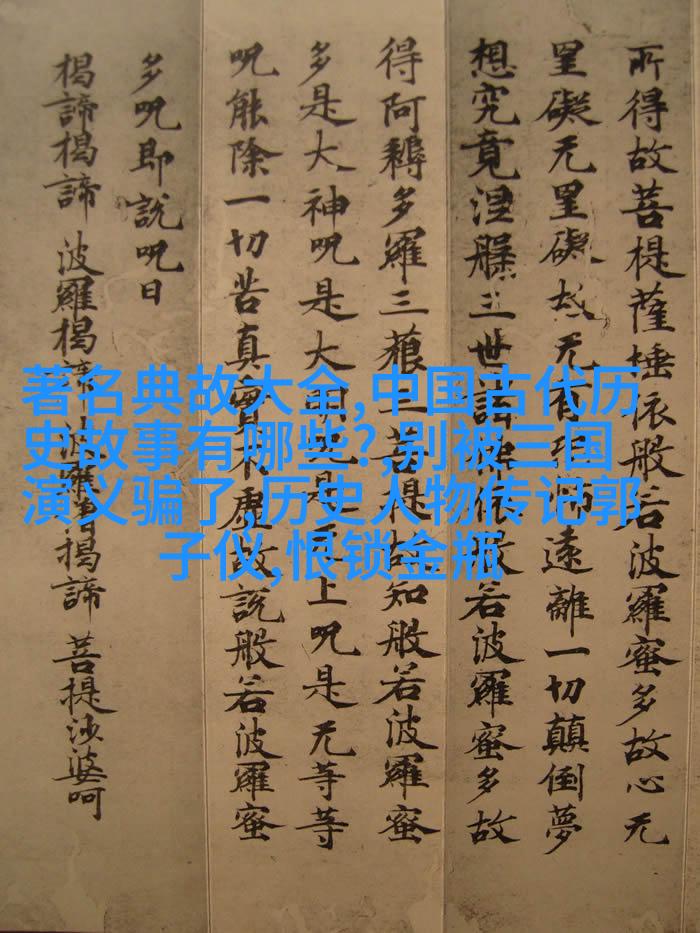 所得故菩提薩埵依般若波羅蜜多故心无
罣礙无罣礙故无有恐怖遠離一切顛倒夢
想究竟涅槃三世諸佛依般若波羅蜜多故
得阿耨多羅三藐三菩提故知般若波羅蜜
多是大神呪是大明呪是无上呪是无等等
呪能除一切苦真實不虛故說般若波羅蜜
多呪即說呪曰
揭諦揭諦 波羅揭諦 波羅僧揭諦 菩提沙婆呵
著名典故大全,中国古代历
史故事有哪些?,别被三国
演义骗了,历史人物传记郭
子仪,恨锁金瓶